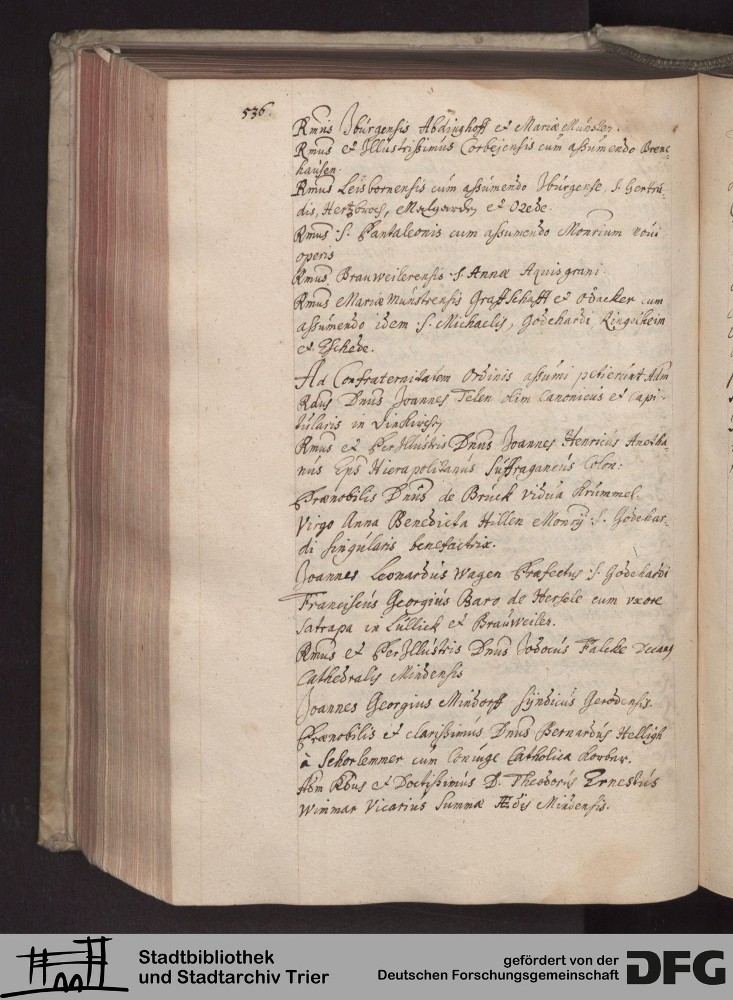 536.
Rmus Iburgensis Abdinghoff et Mariæ Münster.
Rmus et Illustrissimus Corbejensis cum assumendo Brenc-
hausen.
Rmus Leisbornensis cum assumendo Iburgense, S. Gertru-
dis, Hertzbroch, et Ozede.
Rmus S. Pantaleonis cum assumendo Monrium novi
operis
Rmus Brauweilerensis S. Annæ Aquisgrani
Rmus Mariæ Münstrensis Graffschafft et Odacker cum
assumendo idem S. Michaelis, Godehardi Ringelheim
et Eschede.
Ad Confraternitatem Ordinis assumi petierunt Adm
Rdus Dnus Joannes Telen olim Canonicus et Capi-
tularis in
Rmus et PerIllustris Dnus Joannes Henricus Anetha-
nus Eps Hierapolitanus Suffraganeus Colon:
Prænobilis Dnus de Brück vidua Krümmel.
Virgo Anna Benedicta Hillen Monrij S. Godehar-
di singularis benefactrix.
Joannes Leonardus Wagen Præfectus S. Godehardi
Franciscus Georgius Baro de Hersele cum uxore
Satrapa in Lüllich et Brauweiler.
Rmus et PerIllustris Dnus Jodocus Falcke Decang
Cathedralis Mindensis
Joannes Georgius Mindorff Syndicus Gerodensis.
Prænobilis et clarissimus Dnus Bernardus Helligh
à Schorlemmer cum Coniuge Catholica
Adm Rdus et Doctissimus D. Theodorus Ernestus
Wimmar Vicarius Summæ Ædis Mindensis.
Stadtbibliothek
und Stadtarchiv Trier
gefördert von der
Deutschen Forschungsgemeinschaft
DFG